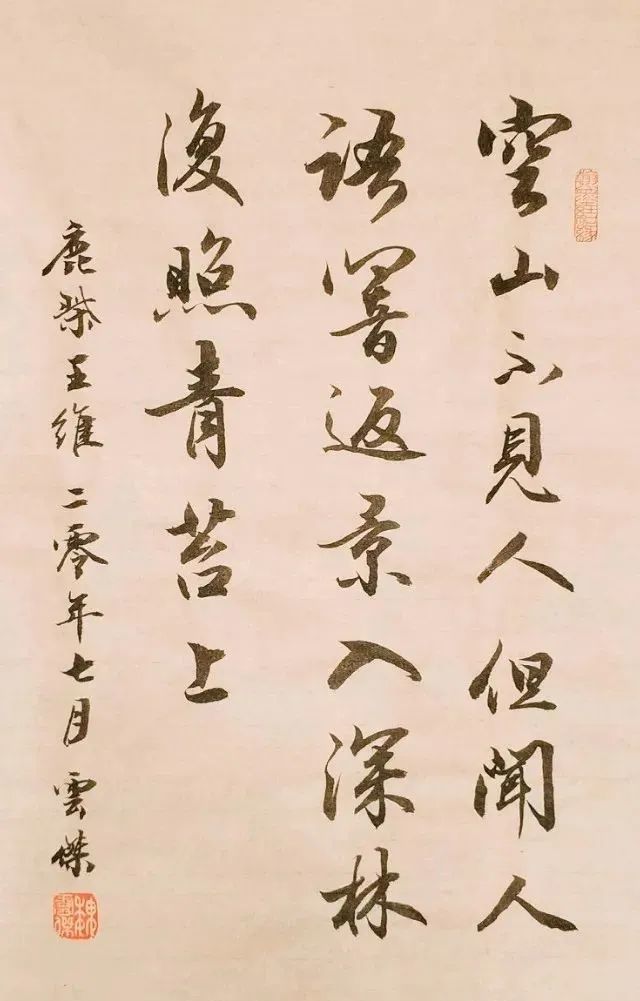 空山不見人但聞人
語響返景入深林
復照青苔上
鹿柴王維 二零年七月 雲傑
魏雲傑